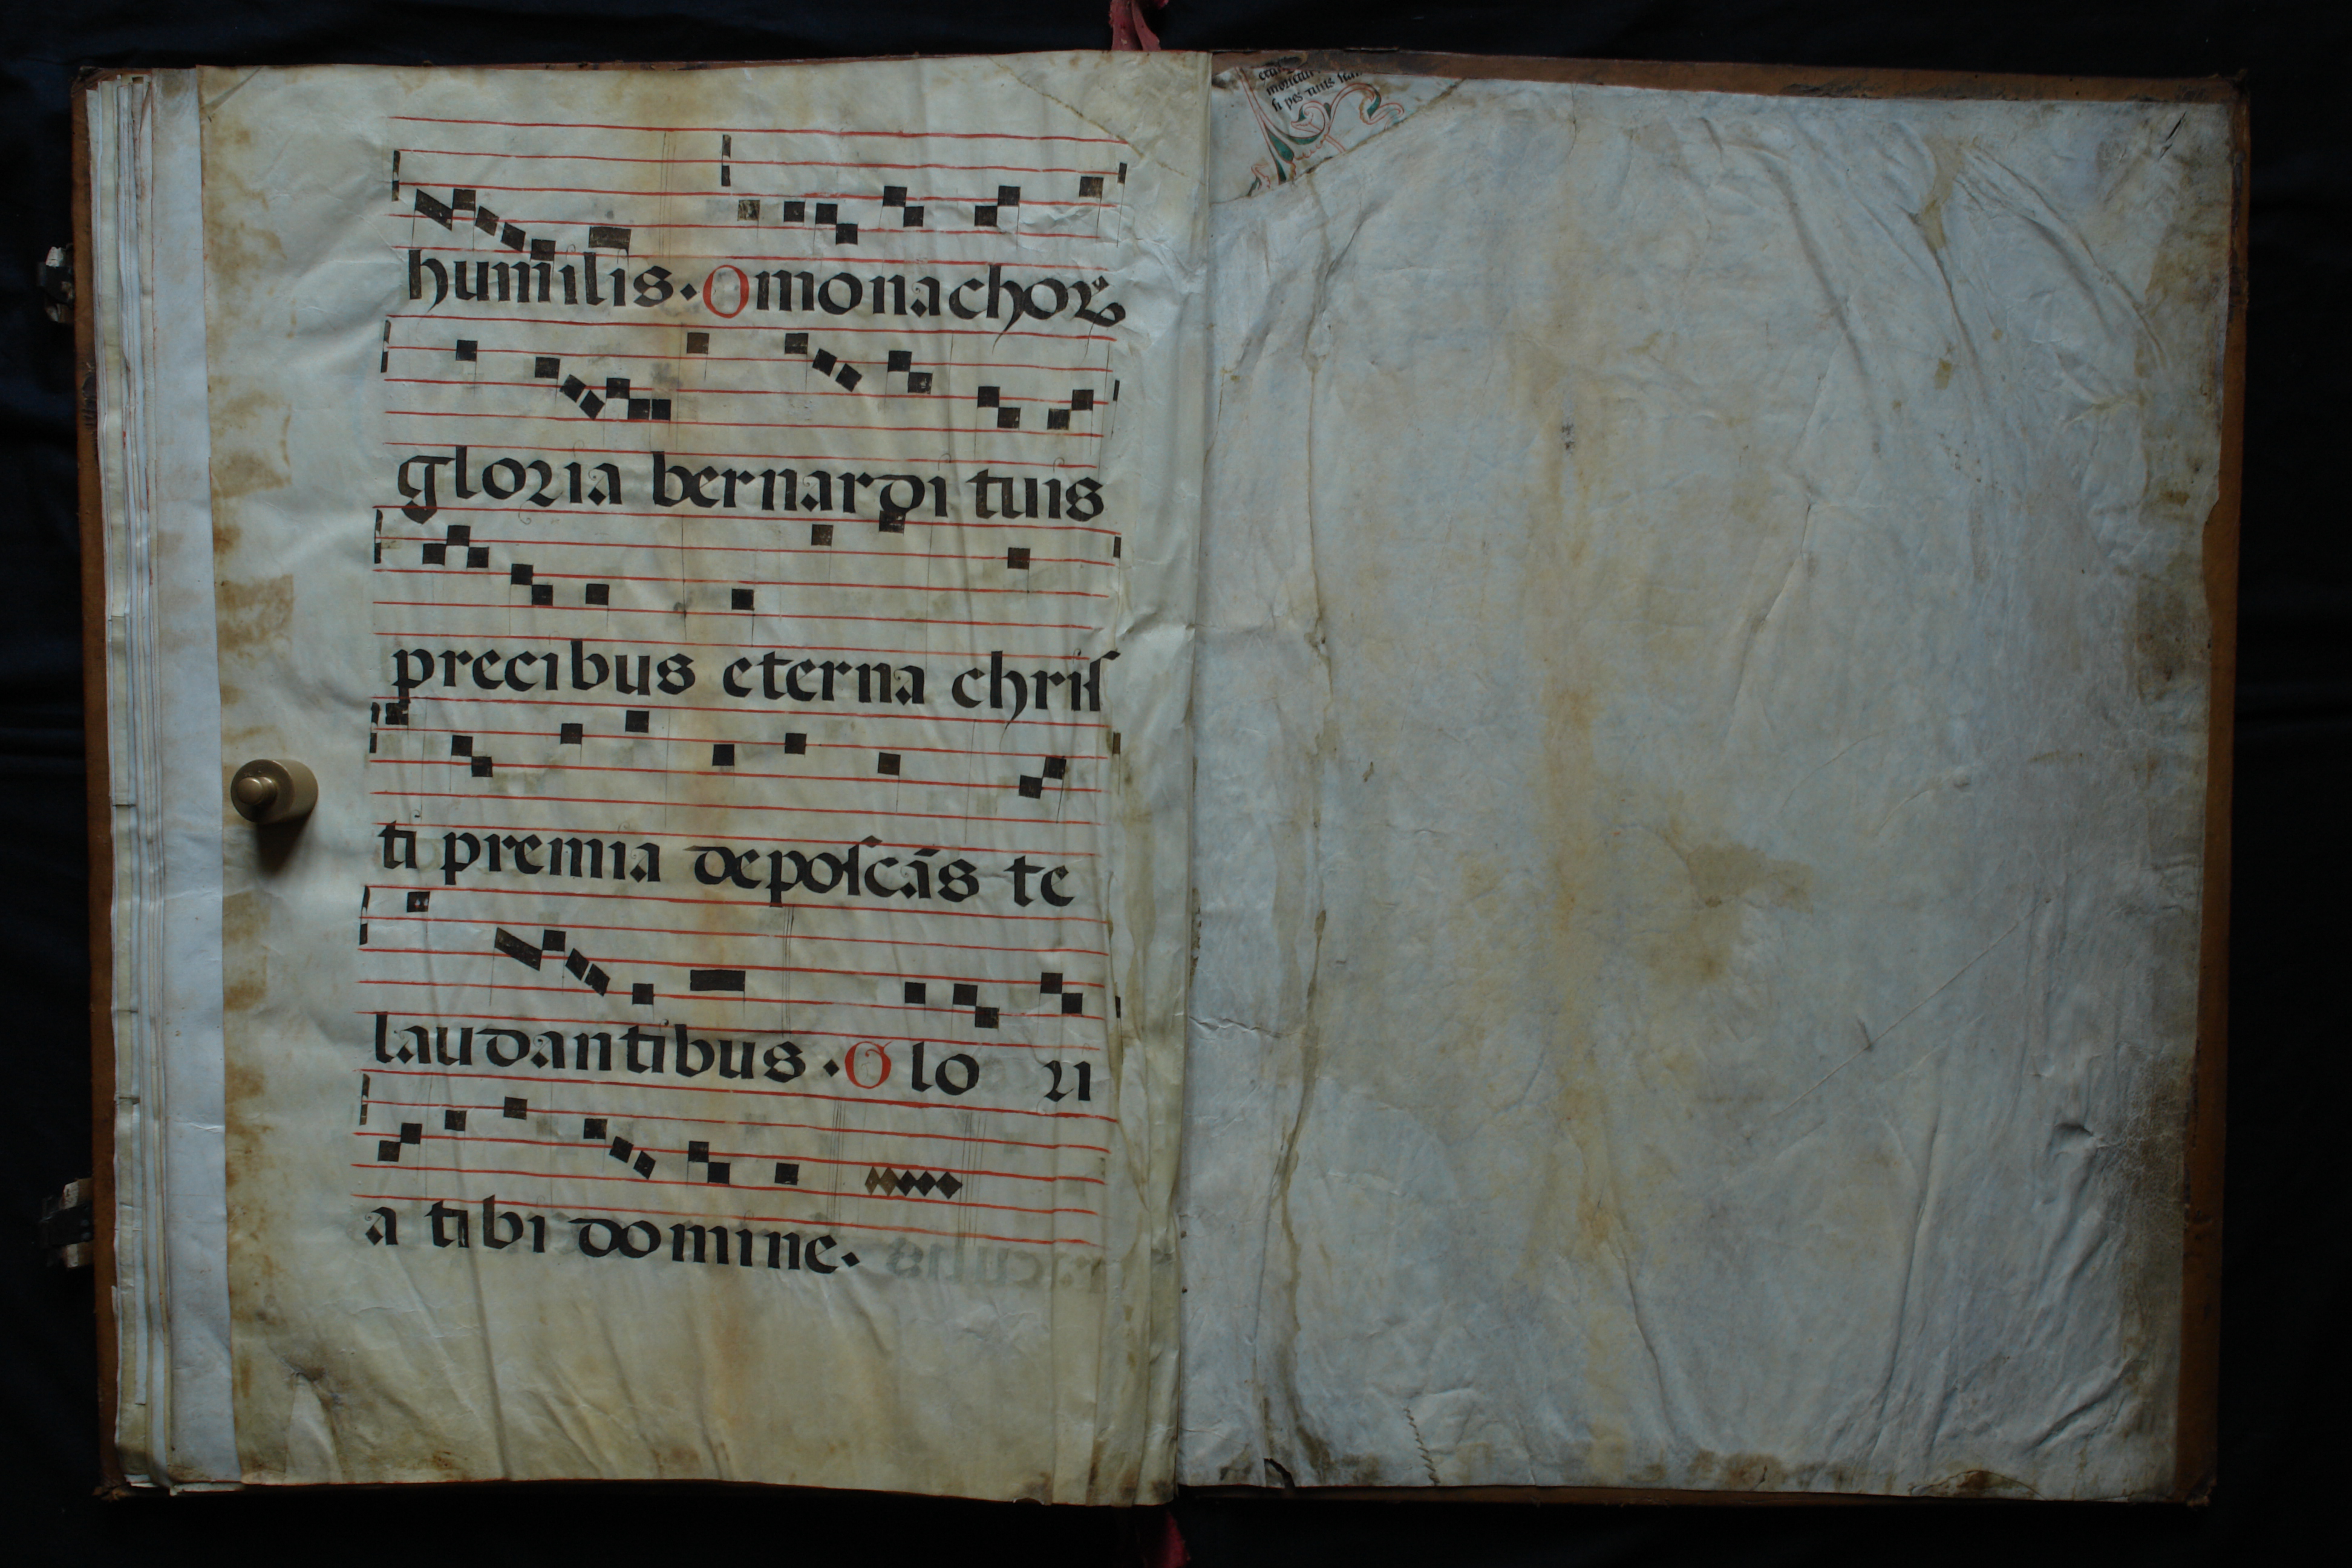 humilis. O monachoꝝ
gloria bernardi tuis
precibus eterna chriſ
ti premia depoſcās te
laudantibus. Glo ri
a tibi domine.
ſi pes tuus